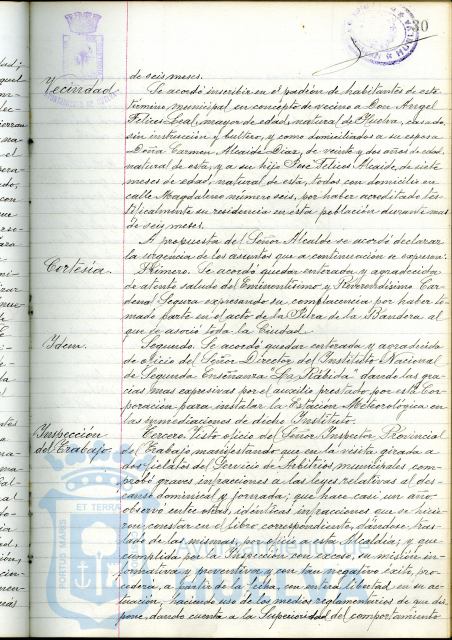 30
de seis meses.
Vecindad
Se acordó inscribir en el padrón de habitantes de este
término municipal en concepto de vecino a Don Angel
Felices Leal, mayor de edad, natural de Huelva, casado,
sin instrucción y cultero, y como domiciliados a su esposa
Doña Carmen Alcaide Diaz, de veinte y dos años de edad,
natural de esta, y a su hijo José Felices Alcaide, de siete
meses de edad, natural de esta, todos con domicilio en
calle Magdalena número seis, por haber acreditado tes-
tificalmente su residencia en esta población durante mas
de seis meses.
A propuesta del Señor Alcalde se acordó declarar
la urgencia de los asuntos que a continuación se expresan:
Cortesía.
Primero. Se acordó quedar enterada y agradecida
de atento saludo del Eminentísimo y Reverendísimo Car-
denal Segura expresando su complacencia por haber to-
mado parte en el acto de la Jura de la Bandera al
que se asoció toda la Ciudad.
Idem.
Segundo. Se acordó quedar enterada y agradecida
de oficio del Señor Director del Instituto Nacional
de Segunda Enseñanza "La Rábida" dando las gra-
cias mas expresivas por el auxilio prestado por esta Cor-
poración para instalar la Estación Meteorológica en
las inmediaciones de dicho Instituto.
Inspección
del Trabajo.
Tercero. Visto oficio del Señor Inspector Provincial
del Trabajo manifestando que en la visita girada a
dos fielatos del Servicio de Arbitrios municipales com-
probó graves infracciones a las leyes relativas al des-
canso dominical y jornada; que hace casi un año
observó entre otras, identicas infracciones que se hicie-
ron constar en el libro correspondiente, dándose tras-
lado de las mismas, por oficio a esta Alcaldía; y que
cumplida por la Inspección con exceso, su misión in-
formativa y preventiva y con tan negativo éxito, pro-
cederá, a partir de la fecha, con entera libertad en su ac-
tuación, haciendo uso de los medios reglamentarios de que dis-
pone, dando cuenta a la Superioridad del comportamiento
ET TERRA
PORTUS MARIS